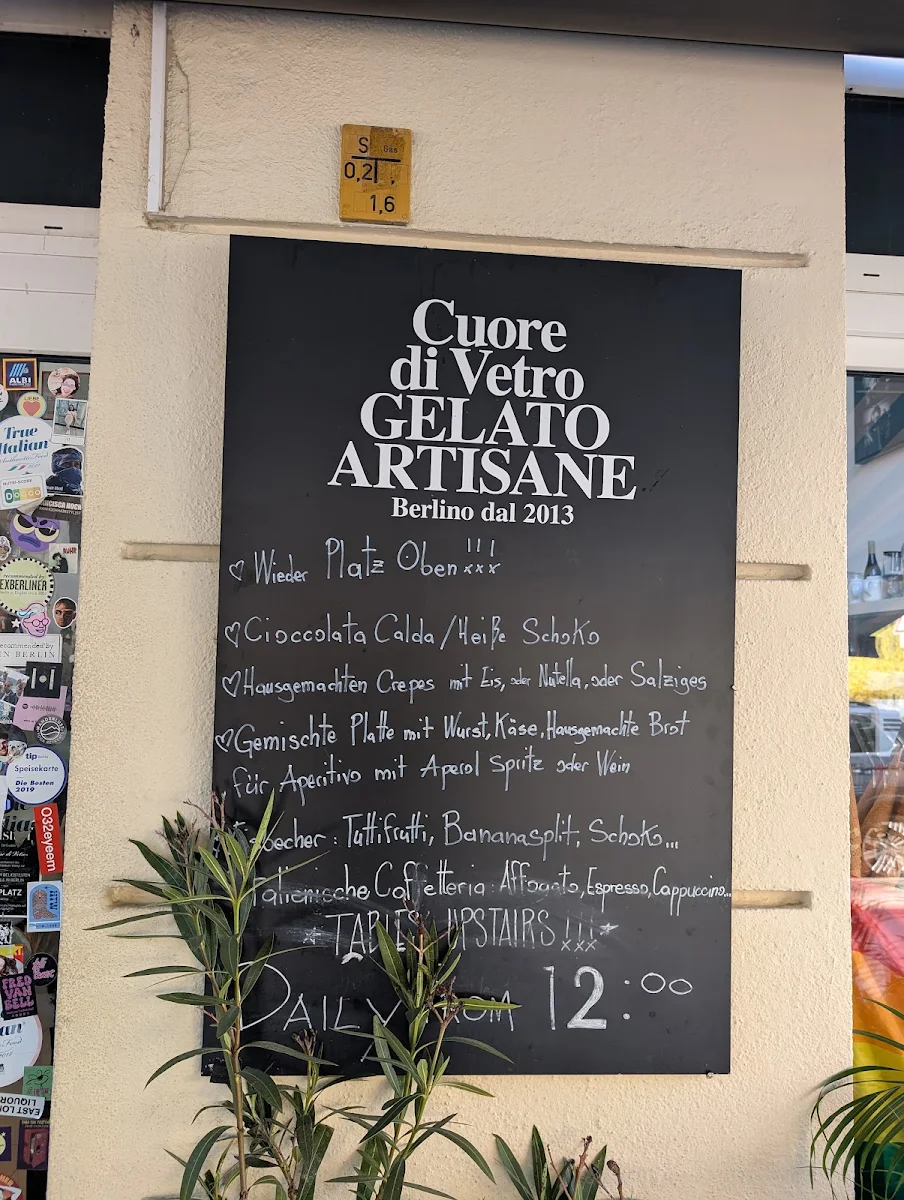 S Gas
0,2
1,6
Cuore
di Vetro
GELATO
ARTISANE
Berlino dal 2013
Wieder Platz Oben !!!
Cioccolata Calda/Heiße Schoko
Hausgemachten Crepes mit Eis, oder Nutella, oder Salziges
Gemischte Platte mit Wurst, Käse, Hausgemachte Brot
für Aperitivo mit Aperol Spritz oder Wein
becher: Tuttifrutti, Bananasplit, Schoko...
Italienische Caffetteria: Affogato, Espresso, Cappuccino...
TABLES UPSTAIRS !!!
DAILY FROM 12:00
ALBI
LIEBE
True
Italian
NUTRI-SCORE
recommended by
EXBERLINER
recommended by
IN BERLIN
tip
Speisekarte
Die Besten
2019
032eyeem
PLATZ
FRED
VAN
BELL
EAST LON
LIQUOR